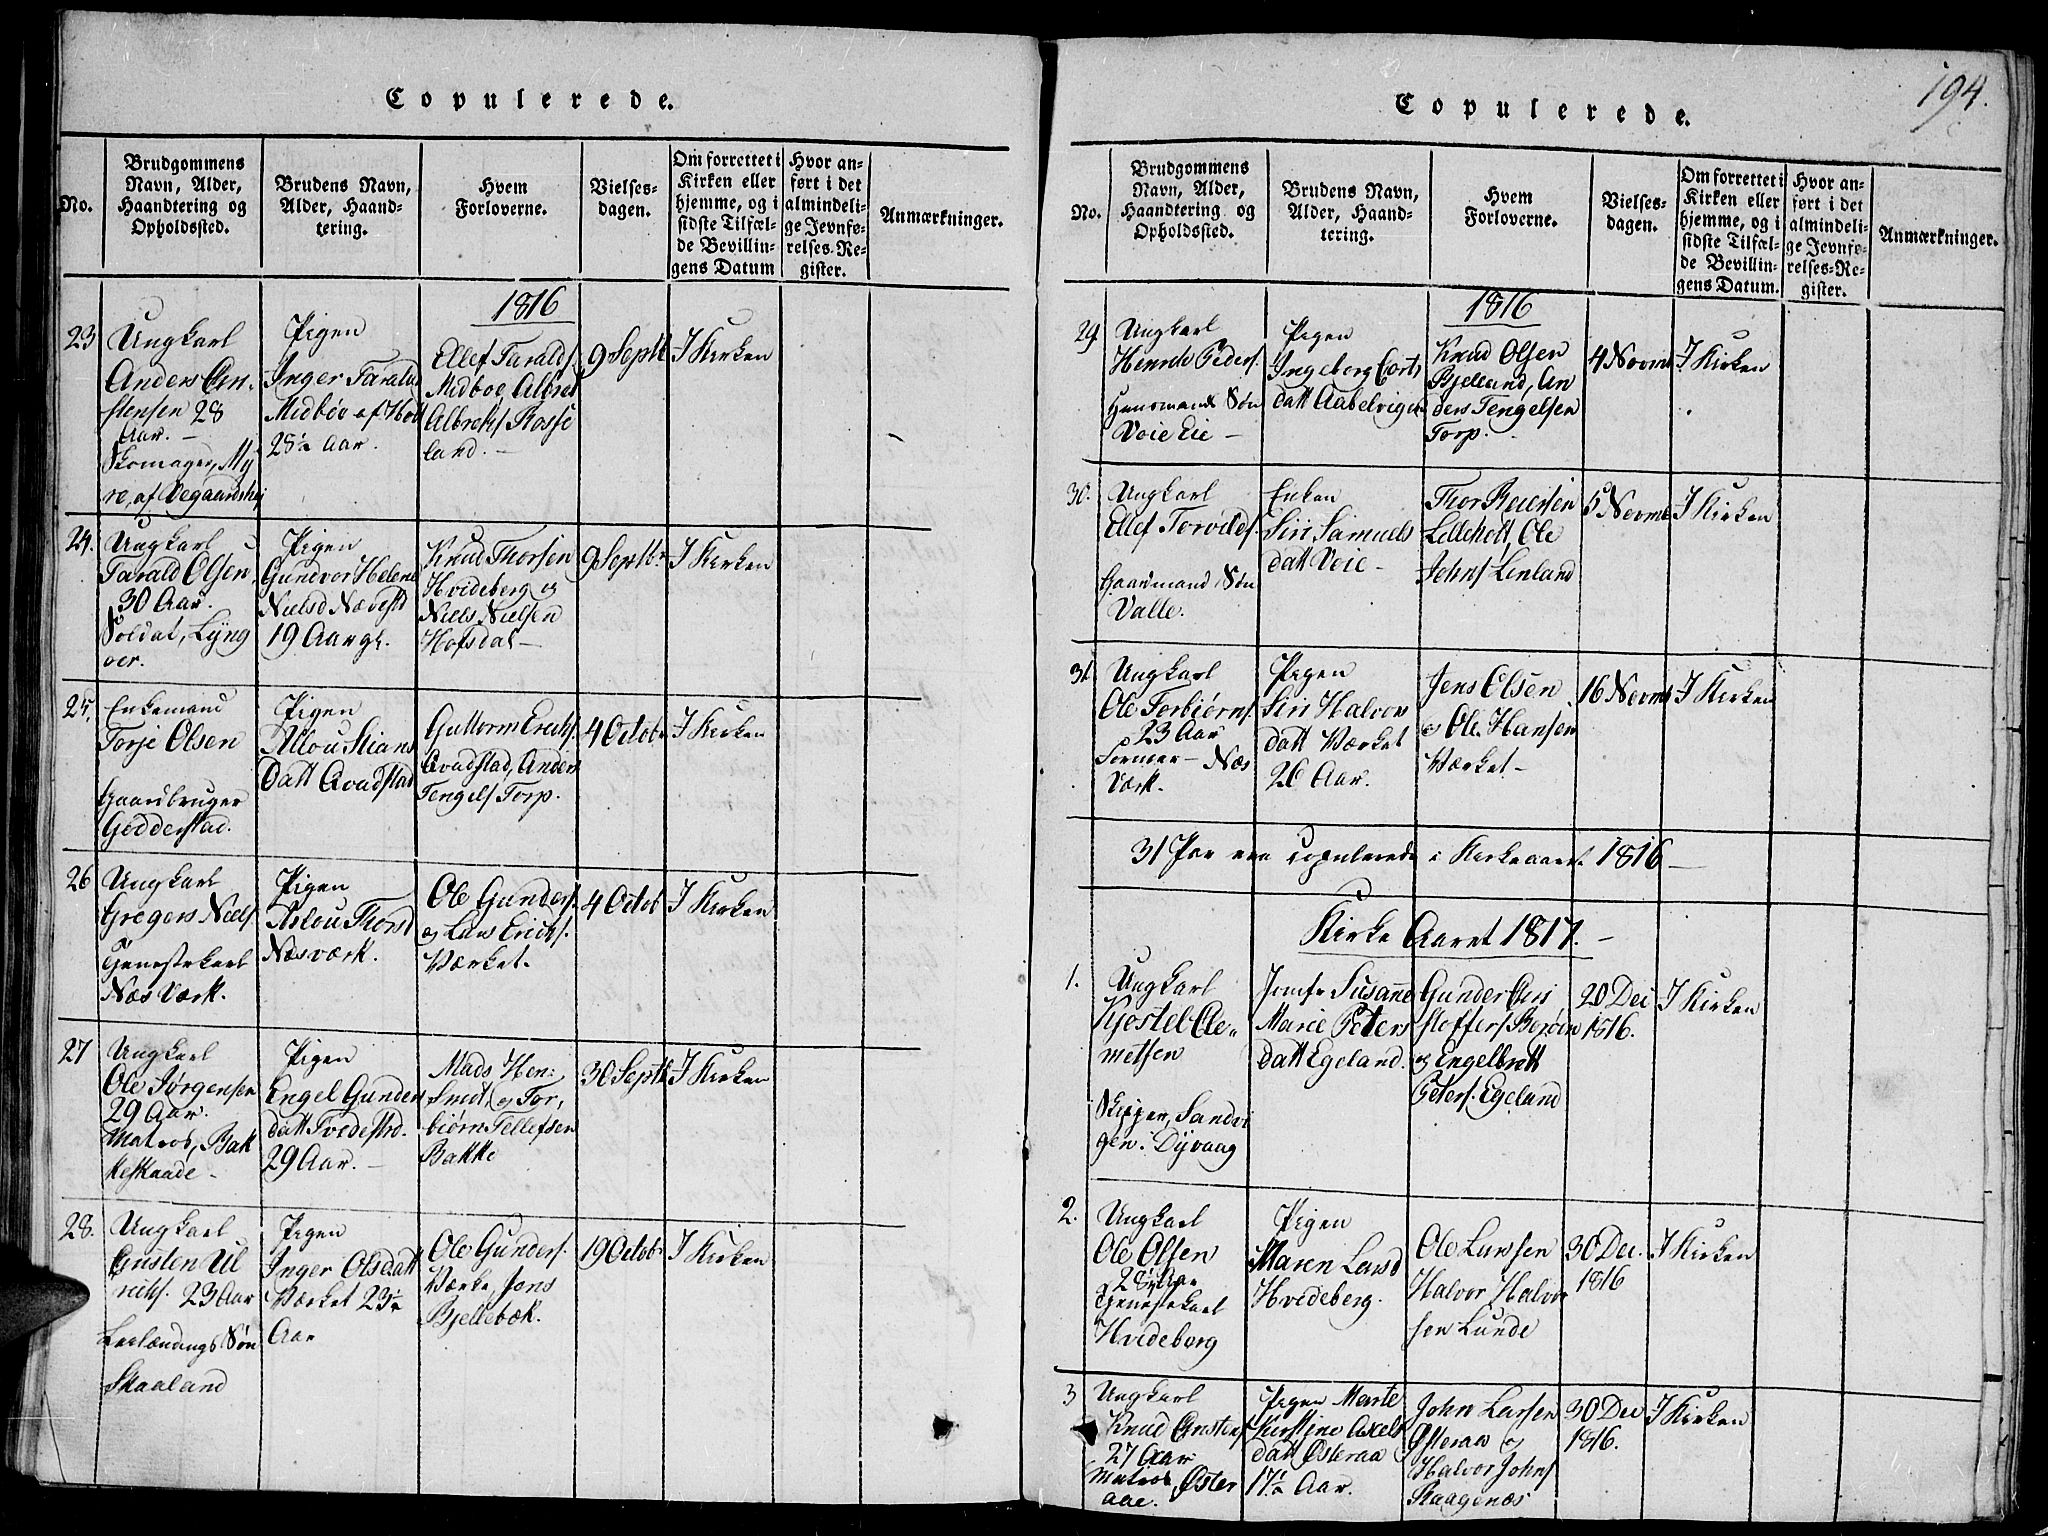 Copulerede.
No.
Brudgommens
Navn, Alder,
Haandtering og
Opholdssted.
Brudens Navn,
Alder, Haand-
tering.
Hvem
Forloverne.
Vielses-
dagen.
Om forrettet i
Kirken eller
hjemme, og i
sidste Tilfæl-
de Bevillin-
gens Datum
Hvor an-
ført i det
almindeli-
ge Jevnfø-
relses-Re-
gister.
Anmærkninger.
1816
23
Ungkarl
Anders
stensen 28
Aar. –
Skomager, My
re, af Vegaardshej
Pigen
Inger Taralds
Midbøe af Holt
28½ Aar.
Ellef Taralds
Midboe, Albret
Albrets Rosse
land. –
9 Septb
I Kirken
24.
Ungkarl
Tarald Olsen
30 Aar.
Soldat, Lyng
oer.
Pigen
Gundvor Helene
Nielsd Næsvestd
19 Aar gl.
Knud Thorsen
Hvideberg og
Niels Nielsen
Hofsdal –
9 Septbr
I Kirken
25.
Enkemand
Torje Olsen
Gaardbruger
Gedderstad.
Pigen
Stians
Datt Qvadstad
Guttorm Erichs
Qvadstad, Anders
Tengels Torp.
4 Octobr
I Kirken
26
Ungkarl
Gregers Niels
Tjenestekarl
Næs Værk.
Pigen
Aslou Thorsd
Næsværk.
Ole Gunders.
og Lars Erichs.
Værket.
4 Octob
I Kirken
27
Ungkarl
Ole Jørgensen
29 Aar.
Matros, Bak
keskaade –
Pigen
Engel Gunder
datt Tvedestrd.
29 Aar. –
Mads Hen:
Smit, og Tor,
biørn Tellefsen
Bakke
30 Septb
I Kirken
28.
Ungkarl
Gusten Ul
richs. 23 Aar
Leilændings Søn
Skaaland
Pigen
Inger Olsdatt
Værket 23½
Aar
Ole Gunders.
Værke Jens
Bjellebæk.
19 Octobr
I Kirken
194.
Copulerede.
No.
Brudgommens
Navn, Alder,
Haandtering og
Opholdssted.
Brudens Navn,
Alder, Haand-
tering.
Hvem
Forloverne.
Vielses-
dagen.
Om forrettet i
Kirken eller
hjemme, og i
sidste Tilfæl-
de Bevillin-
gens Datum.
Hvor an-
ført i det
almindeli-
ge Jevnfø-
relses-Re-
gister.
Anmærkninger.
1816
29
Ungkarl
Henrik Peders.
Huusmands Søn
Voie Eie –
Pigen
Ingeborg Corts
datt Aabelvigen
Knud Olsen
Bjelland, An
ders Tengelsen
Torp.
4 Novmb
I Kirken
30.
Ungkarl
Ellef Torødes.
Gaardmand Søn
Valle.
Enken
Siri Samuels
datt Voie –
Thor Reiersen
Lilleholt, Ole
Johns Lenland
5 Novmb
I Kirken
31
Ungkarl
Ole Torbiørns.
23 Aar
Former – Næs
Værk.
Pigen
Siri Halvors
datt Værket
26 Aar.
Jens Olsen
og Ole Hansen
Værket –
16 Novmb
I Kirken
31 Par ere copulerede i Kirkeaaret 1816 –
Kirke Aaret 1817. –
1.
Ungkarl
Kjostel Cle„
metsen
Skipper, Sandvi
gen. Dyvaag
Jomfr Susanne
Marie Peters
datt Egeland.
Gunder Cri
stoffers Berøen
og Engelbrett
Peters. Egeland
20 Dec
1816.
I Kirken
2.
Ungkarl
Ole Olsen
28½ Aar
Tjenestekarl
Hvideberg
Pigen
Maren Larsd
Hvideberg.
Ole Larssen
Halvor Halvor
sen Lunde
30 Dec.
1816
I Kirken
3
Ungkarl
Knud
27 Aar
Matros Øster
aae.
Pigen Marte
Kirstine Axels
datt Østeraa
17½ Aar.
John Larsen
Østeraa og
Halvor Johns
Skaagenæs
30 Dec
1816.
I Kirken